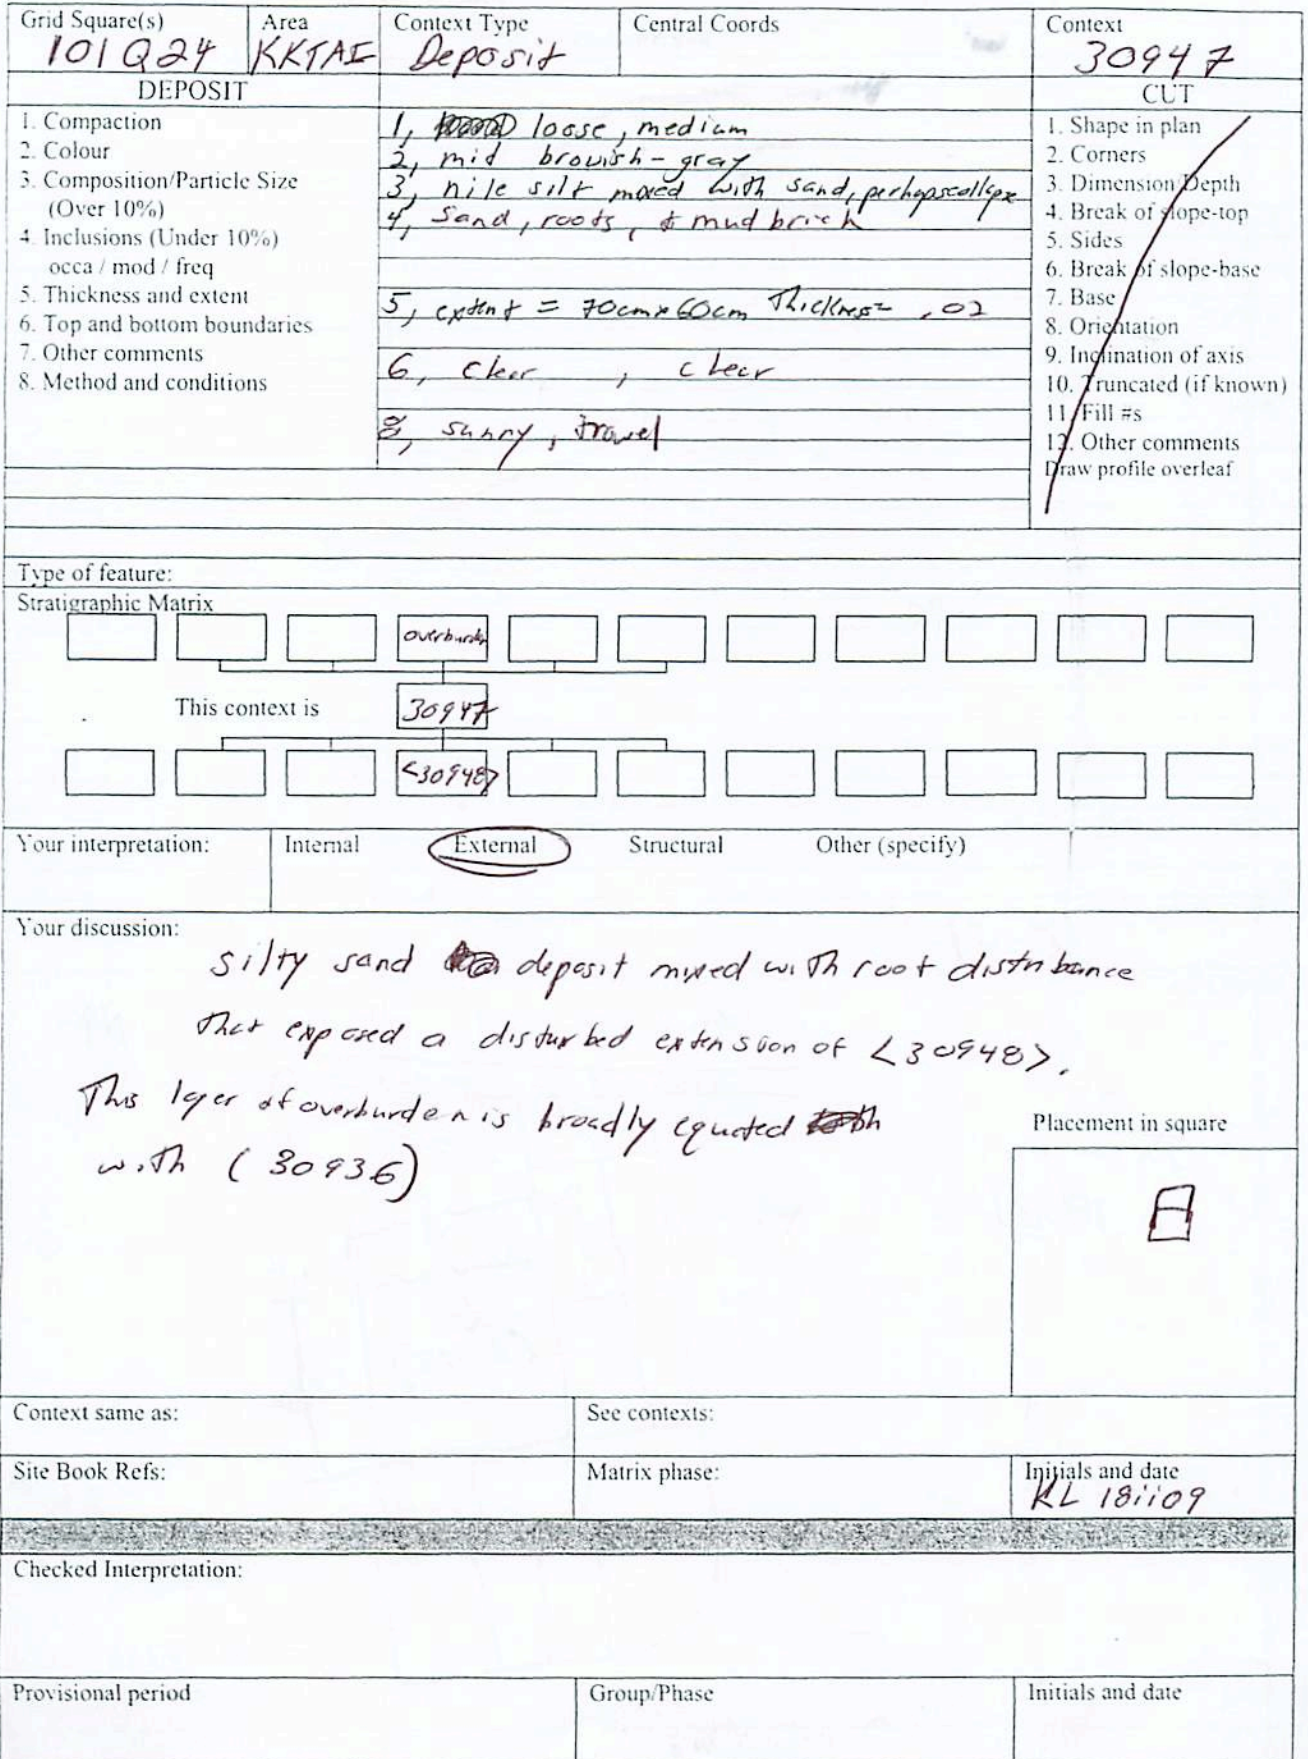 Grid Square(s) Area Context Type Central Coords Context
101 Q24 KKTAE Deposit 30947
DEPOSIT CUT
1. Compaction
2. Colour
3. Composition/Particle Size
(Over 10%)
4. Inclusions (Under 10%)
occa / mod / freq
5. Thickness and extent
6. Top and bottom boundaries
7. Other comments
8. Method and conditions
1, loose, medium
2, mid brouish-gray
3, nile silt mixed with sand, perhaps collapse
4, Sand, roots, & mud brick
5, extent = 70cm x 60cm Thickness= .02
6, clear , clear
8, sunny, trowel
1. Shape in plan
2. Corners
3. Dimension/Depth
4. Break of slope-top
5. Sides
6. Break of slope-base
7. Base
8. Orientation
9. Inclination of axis
10. Truncated (if known)
11. Fill #s
12. Other comments
Draw profile overleaf
Type of feature:
Stratigraphic Matrix
overburden
This context is 30947
<30948>
Your interpretation: Internal External Structural Other (specify)
Your discussion:
silty sand deposit mixed with root disturbance
that exposed a disturbed extension of <30948>.
This layer of overburden is broadly equated
with (30936)
Placement in square
Context same as: See contexts:
Site Book Refs: Matrix phase: Initials and date
KL 18ii09
Checked Interpretation:
Provisional period Group/Phase Initials and date